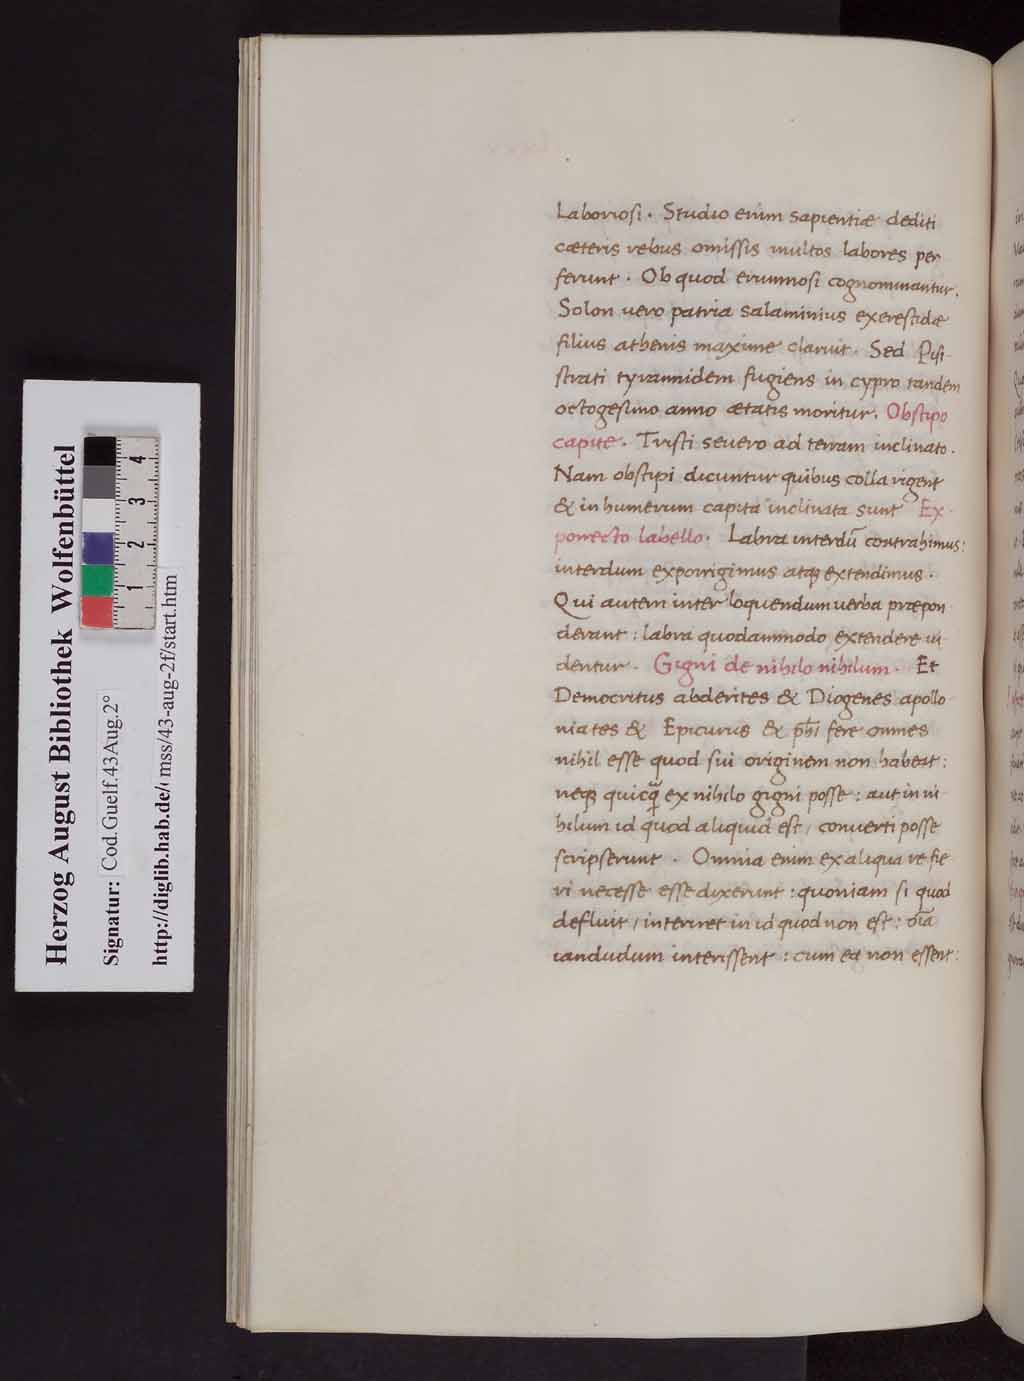 Laboriosi. Studio enim sapientiæ dediti
cæteris rebus omissis multos labores per
ferunt. Ob quod erumnosi cognominantur.
Solon uero patria salaminius exerestidæ
filius athenis maxime claruit. Sed Pisi
strati tyrannidem fugiens in cypro tandem
octogesimo anno ætatis moritur. Obstipo
capite. Tristi seuero ad terram inclinato.
Nam obstipi dicuntur quibus colla rigent
& in humerum capita inclinata sunt Ex
porrecto labello. Labra interdū contrahimus:
interdum exporrigimus atqꝫ extendimus.
Qui autem inter loquendum uerba præpon
derant: labra quodammodo extendere ui
dentur. Gigni de nihilo nihilum. Et
Democritus abderites & Diogenes apollo
niates & Epicurus & ph̄i fere omnes
nihil esse quod sui originem non habeat:
neqꝫ quicq̄ ex nihilo gigni posse: aut in ni
hilum id quod aliquid est, conuerti posse
scripserunt. Omnia enim ex aliqua re fie
ri necesse esse dixerunt: quoniam si quod
defluit, interiret in id quod non est: oīa
iandudum interissent: cum ea non essent:
Herzog August Bibliothek Wolfenbüttel
Signatur: Cod.Guelf.43Aug.2°
http://diglib.hab.de/ mss/43-aug-2f/start.htm
1 2 3 4